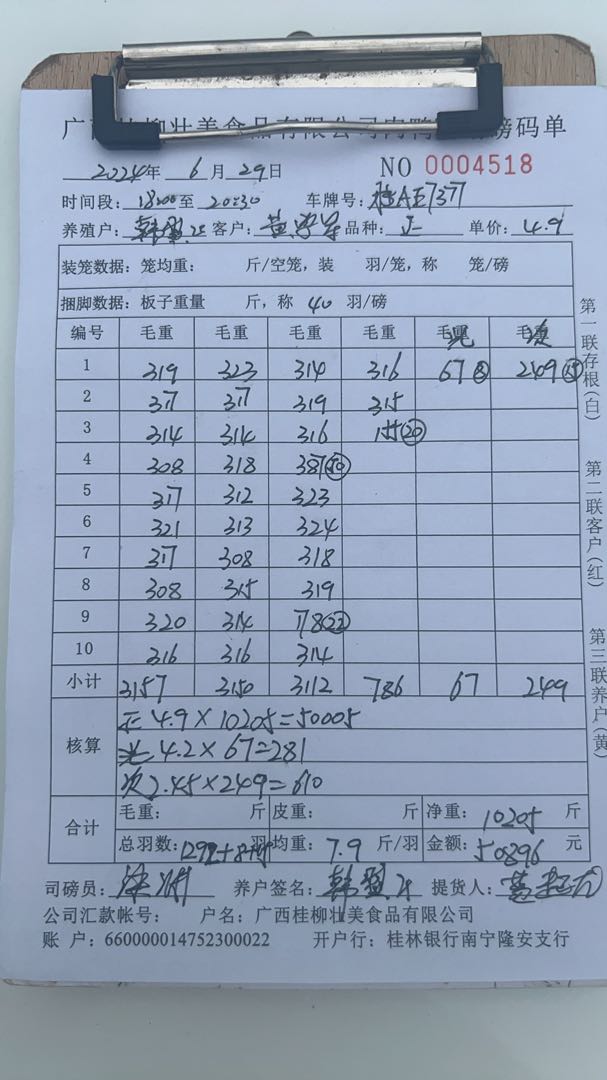 广西桂柳壮美食品有限公司肉鸭 磅码单
2024年 6月29日 NO 0004518
时间段: 18:00至 20:30 车牌号: 桂AE7377
养殖户: 韩 客户: 黄 品种: 正 单价: 4.9
装笼数据: 笼均重: 斤/空笼, 装 羽/笼, 称 笼/磅
捆脚数据: 板子重量 斤, 称 40 羽/磅
编号 毛重 毛重 毛重 毛重 毛光 毛次
1 319 323 314 316 67⑧ 249
2 317 317 319 315
3 314 314 316 155⑳
4 308 318 387㊿
5 317 312 323
6 321 313 324
7 317 308 318
8 308 315 319
9 320 314 178㉒
10 316 316 314
小计 3157 3150 3112 786 67 249
核算
正 4.9×10205=50005
光 4.2×67=281
次 2.45×249=610
合计
毛重: 斤 皮重: 斤 净重: 10205 斤
总羽数: 1292+8+ 羽 均重: 7.9 斤/羽 金额: 50896 元
司磅员: 养户签名: 韩 提货人: 黄
公司汇款帐号: 户名: 广西桂柳壮美食品有限公司
账 户: 660000014752300022 开户行: 桂林银行南宁隆安支行
第一联存根(白)
第二联客户(红)
第三联养户(黄